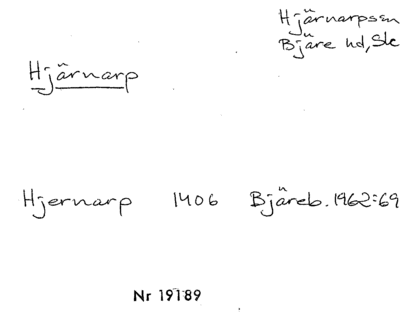 Hjärnarpssn
Bjäre hd, Sk
Hjärnarp
Hjernarp 1406 Bjäreb. 1962:69
Nr 19189